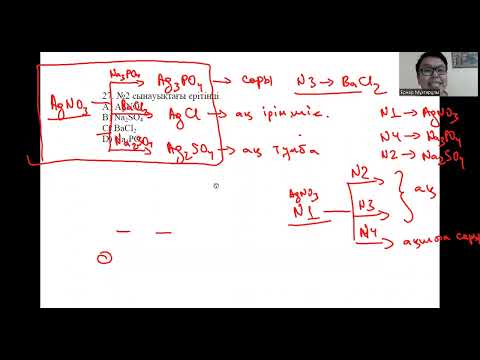 27. №2 сынауықтағы ерітінді
A)
B) Na₂SO₄
C) BaCl₂
D) Na₃PO₄
AgNO₃
Na₃PO₄ Ag₃PO₄ → сары
BaCl₂ AgCl → ақ ірімшік.
Na₂SO₄ Ag₂SO₄ → ақ тұнба
N3 → BaCl₂
N1 → AgNO₃
N4 → Na₃PO₄
N2 → Na₂SO₄
AgNO₃
N1
N2
N3
N4
ақ
сары